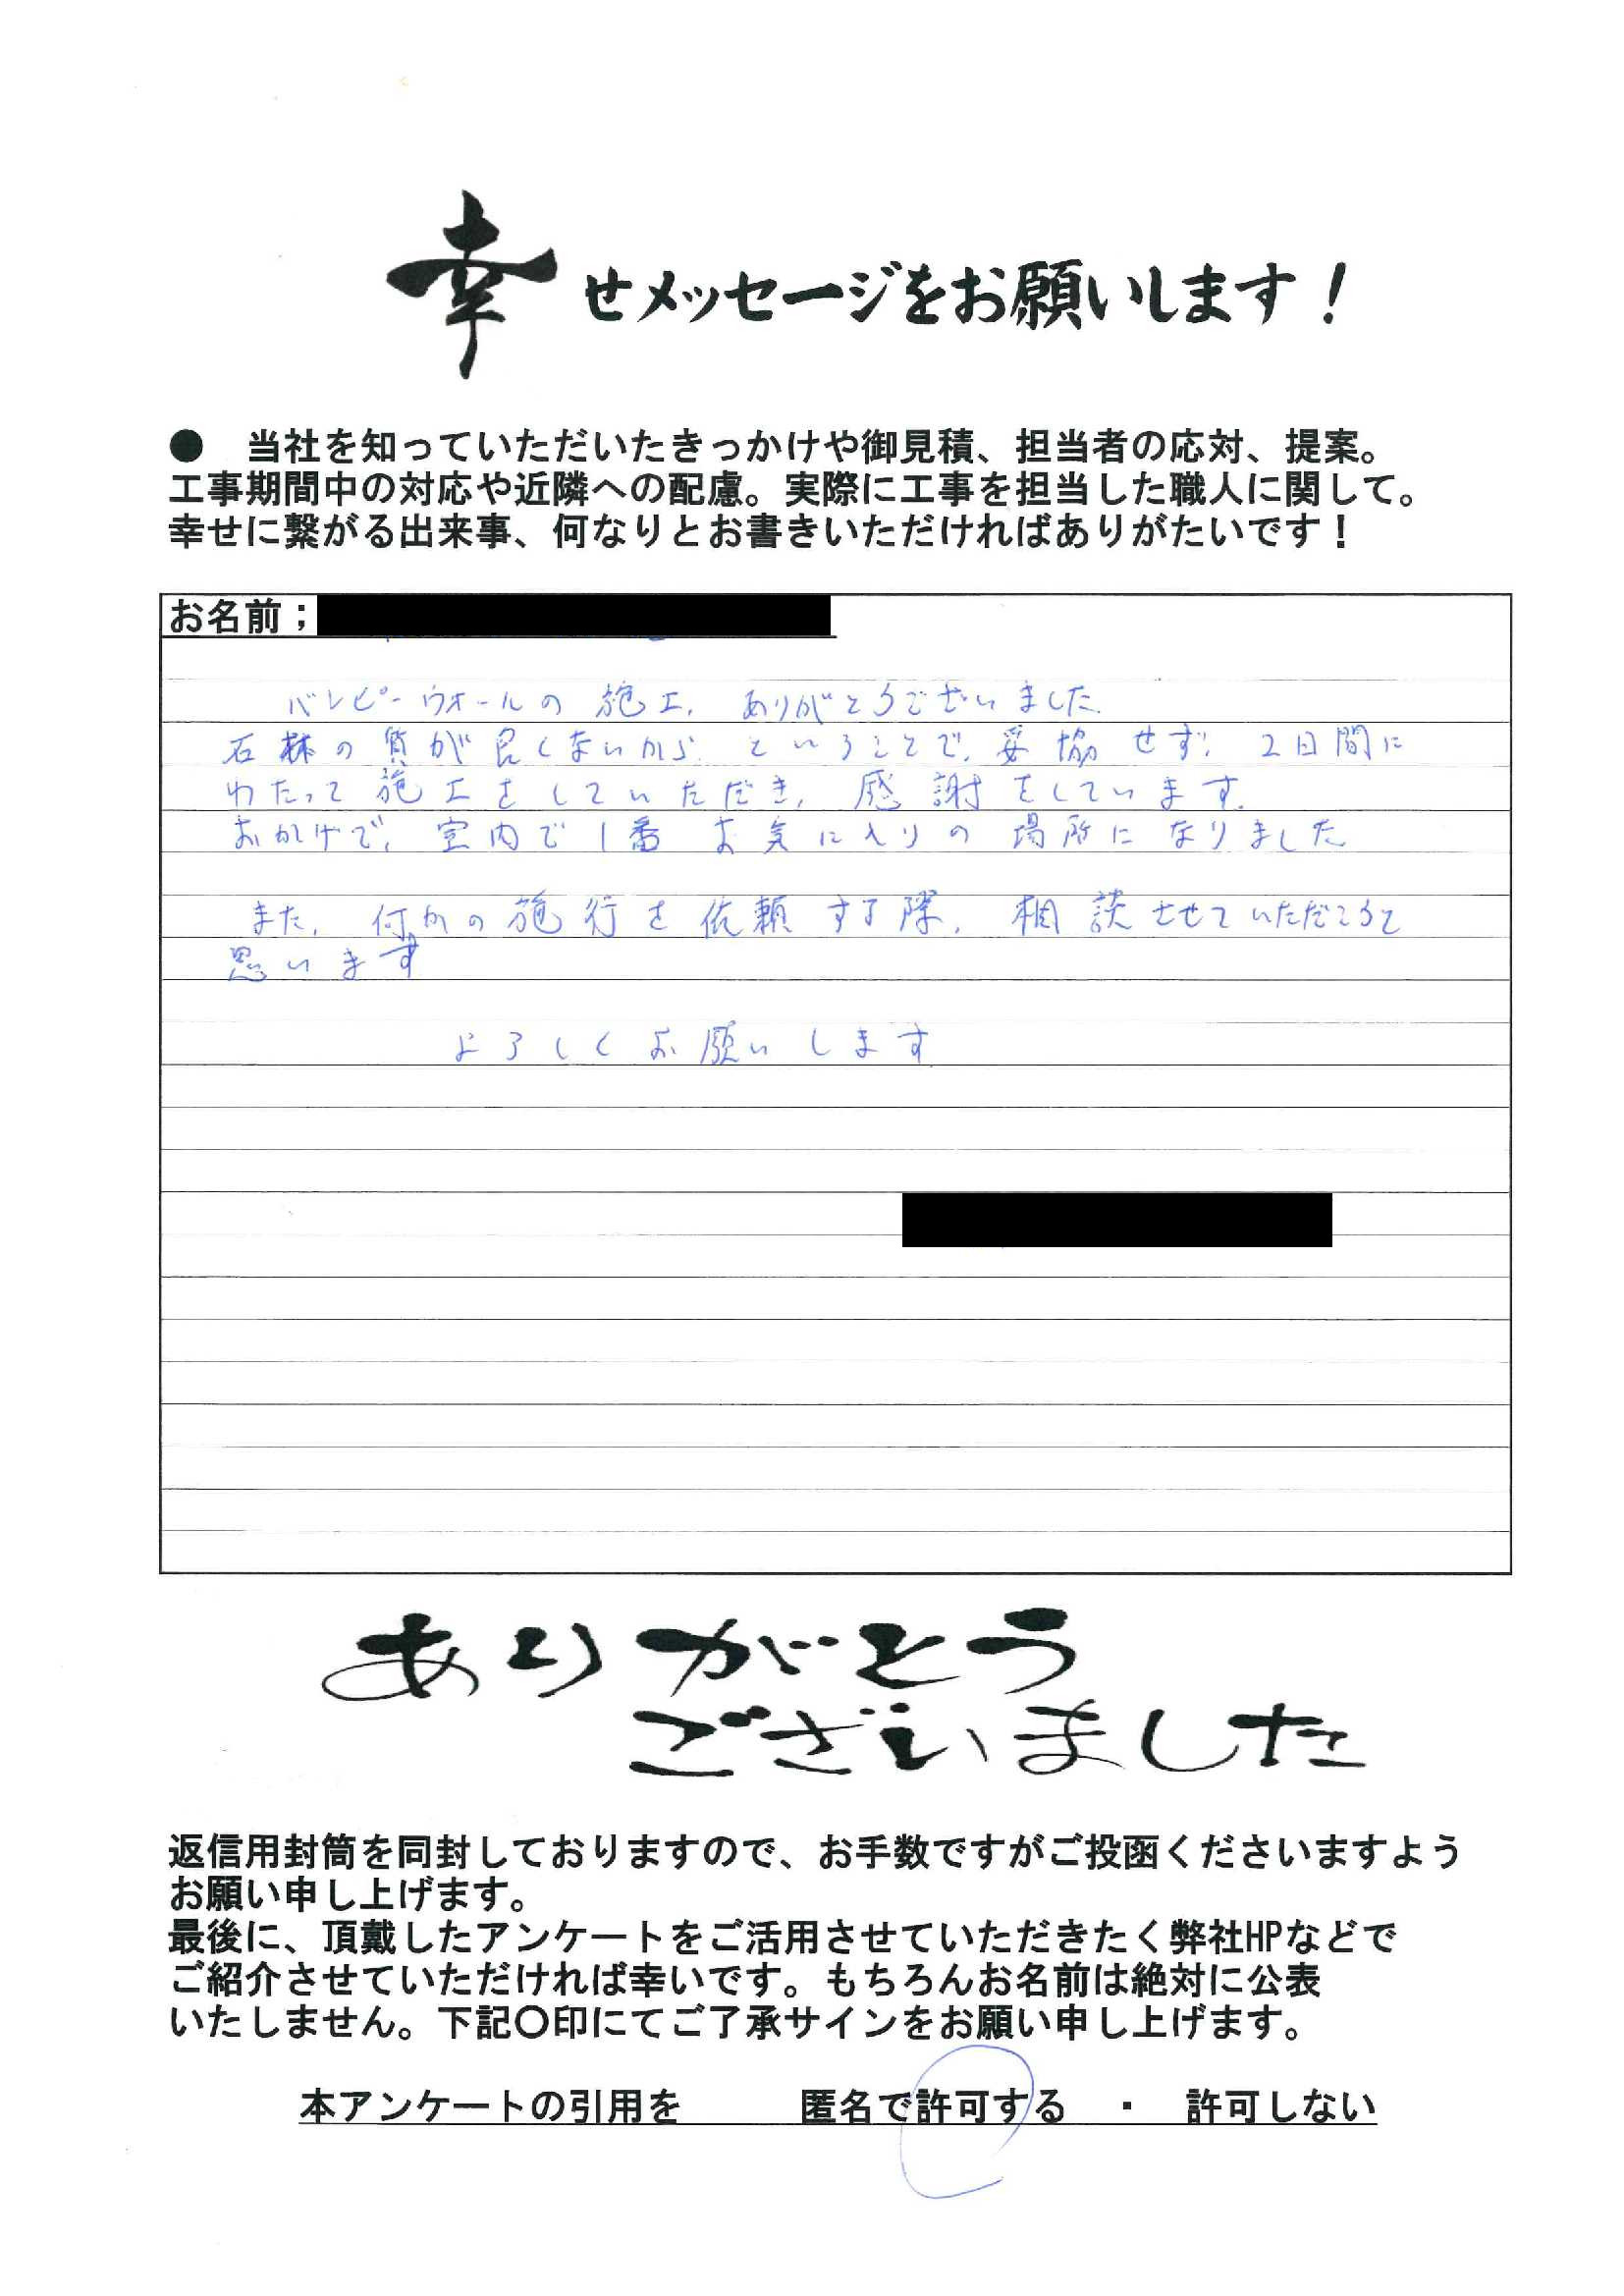 幸せメッセージをお願いします！
● 当社を知っていただいたきっかけや御見積、担当者の応対、提案。
工事期間中の対応や近隣への配慮。実際に工事を担当した職人に関して。
幸せに繋がる出来事、何なりとお書きいただければありがたいです！
お名前；
バンピーウォールの施工、ありがとうございました。
石材の質が良くないから、ということで、妥協せず、2日間に
わたって施工をしていただき、感謝をしています。
おかげで、室内で1番お気に入りの場所になりました
また、何かの施行を依頼する際、相談させていただこうと
思います
よろしくお願いします
ありがとう
ございました
返信用封筒を同封しておりますので、お手数ですがご投函くださいますよう
お願い申し上げます。
最後に、頂戴したアンケートをご活用させていただきたく弊社HPなどで
ご紹介させていただければ幸いです。もちろんお名前は絶対に公表
いたしません。下記〇印にてご了承サインをお願い申し上げます。
本アンケートの引用を 匿名で許可する ・ 許可しない